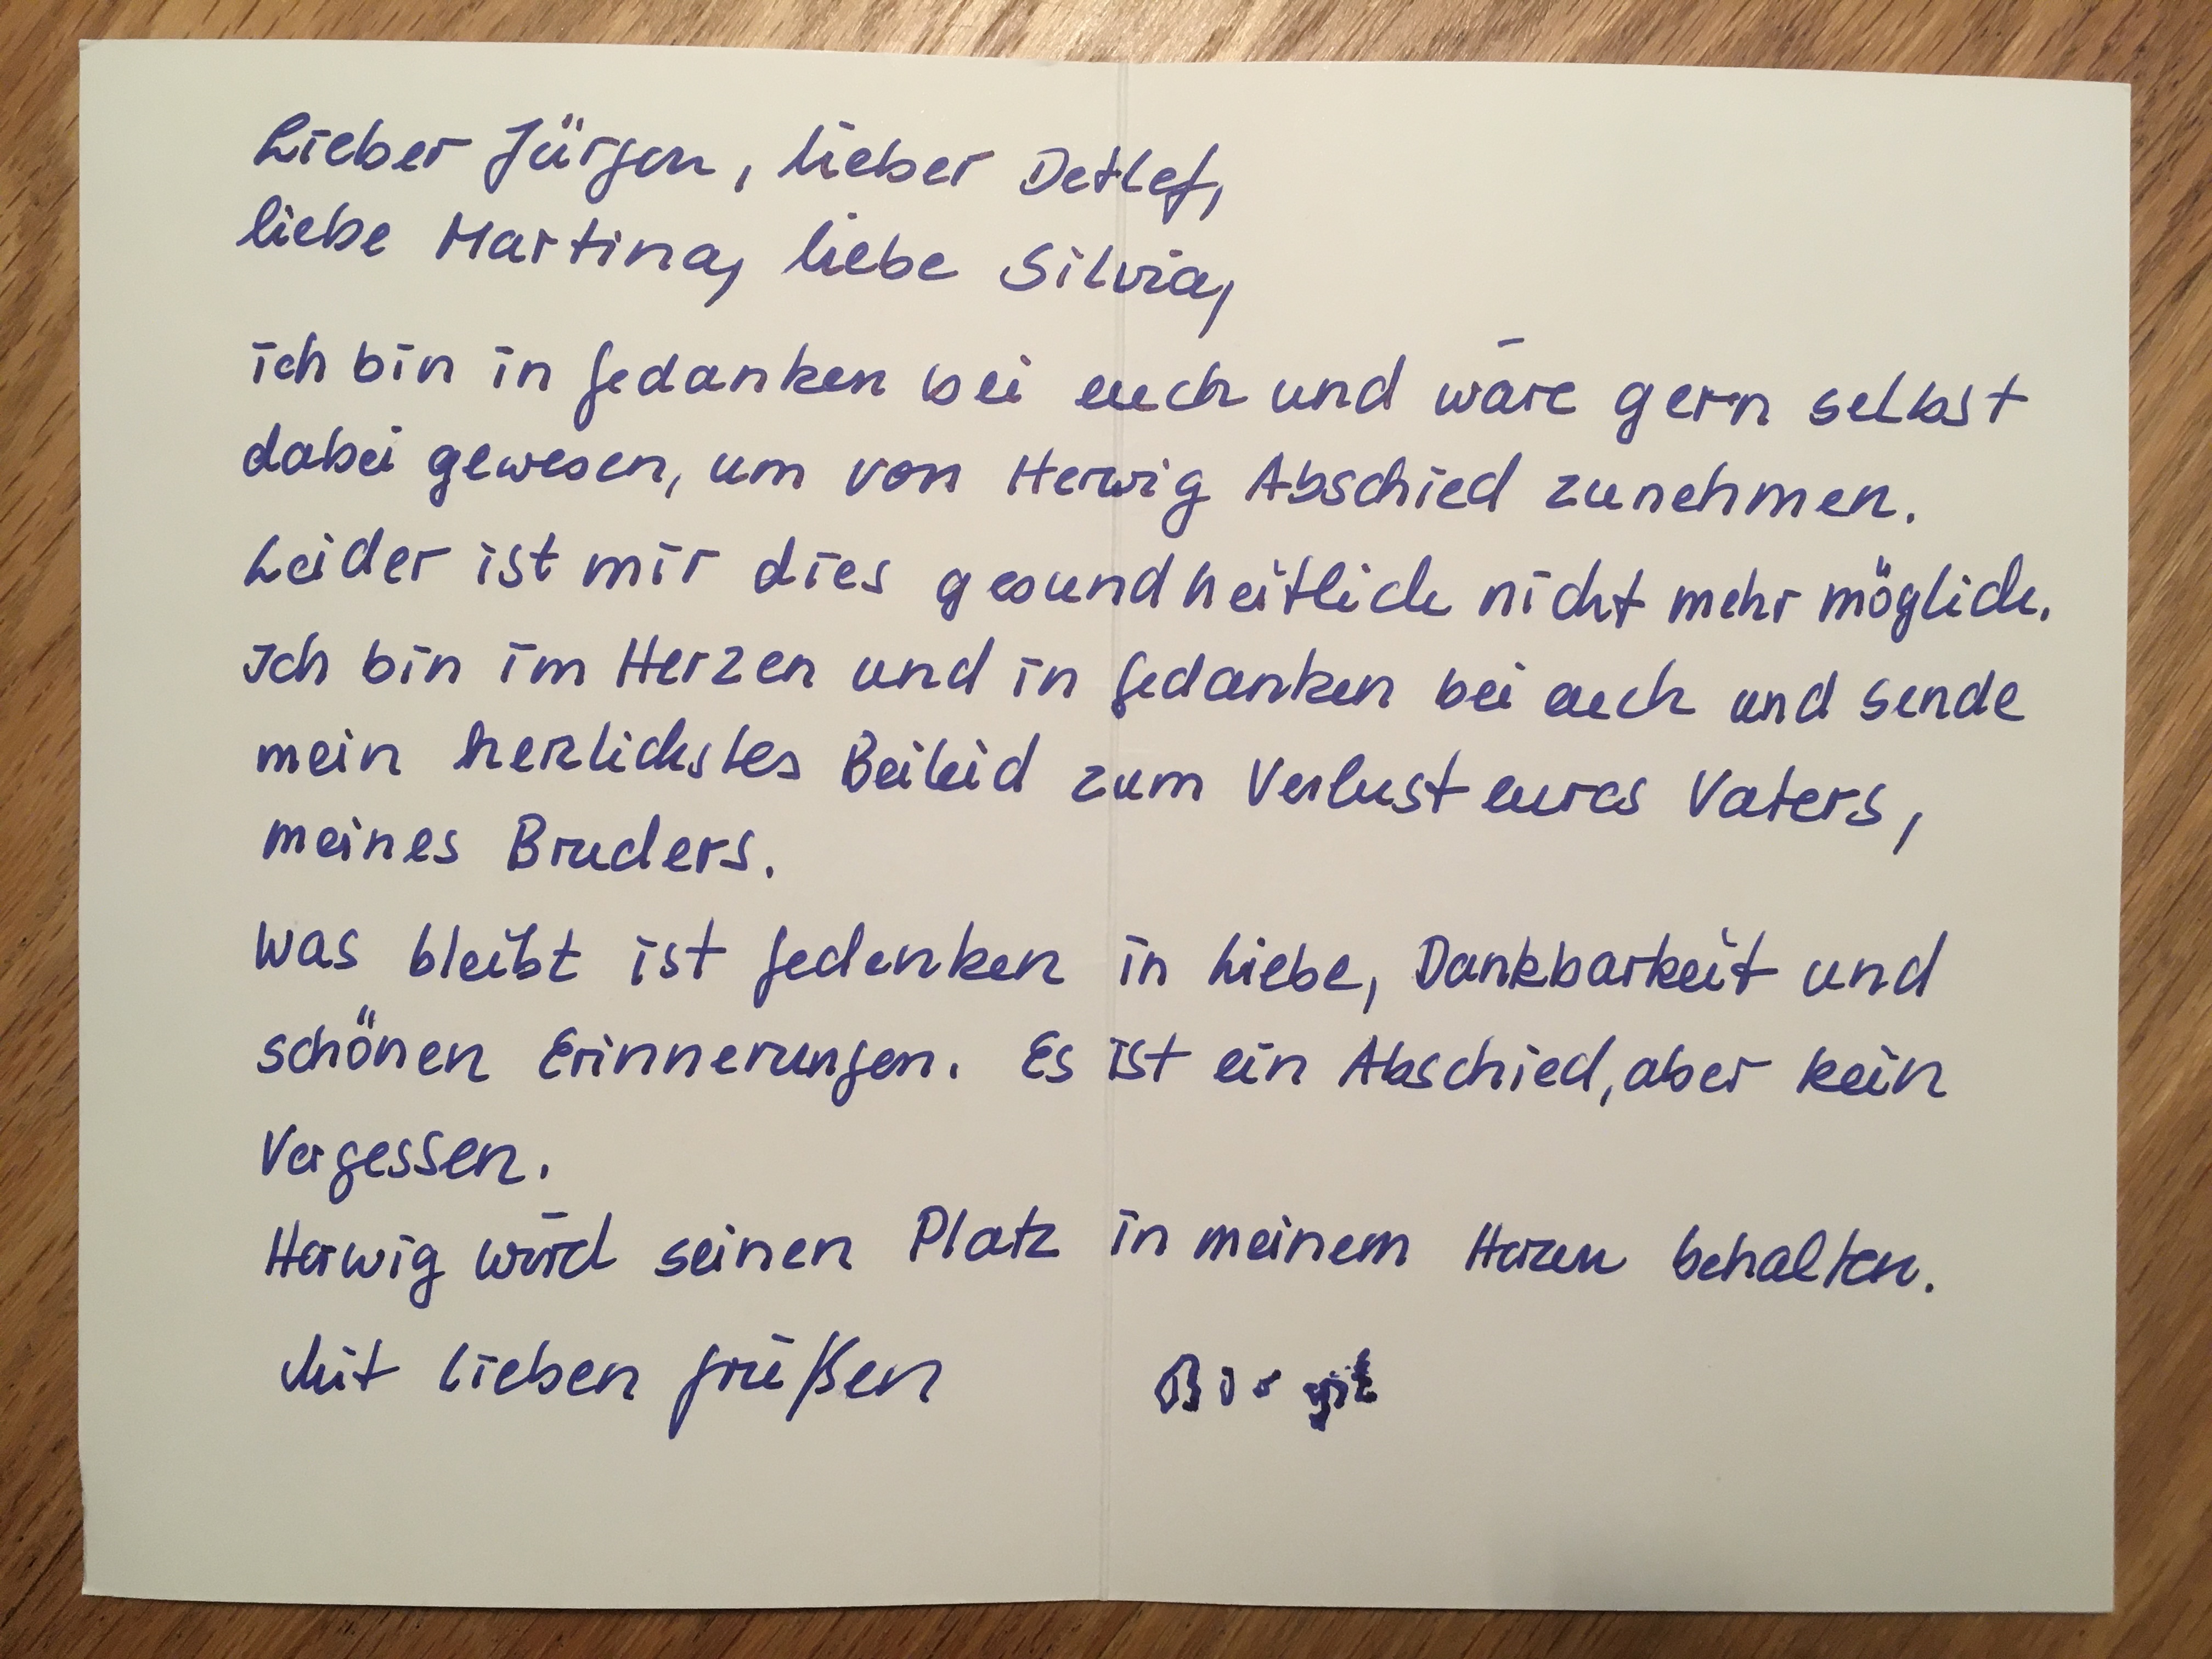 Lieber Jürgen, lieber Detlef,
liebe Martina, liebe Silvia,
ich bin in Gedanken bei euch und wäre gern selbst
dabei gewesen, um von Herwig Abschied zunehmen.
Leider ist mir dies gesundheitlich nicht mehr möglich.
Ich bin im Herzen und in Gedanken bei euch und sende
mein herzlichstes Beileid zum Verlust eures Vaters,
meines Bruders.
Was bleibt ist Gedenken in Liebe, Dankbarkeit und
schönen Erinnerungen. Es ist ein Abschied, aber kein
Vergessen.
Herwig wird seinen Platz in meinem Herzen behalten.
Mit lieben Grüßen Birgit